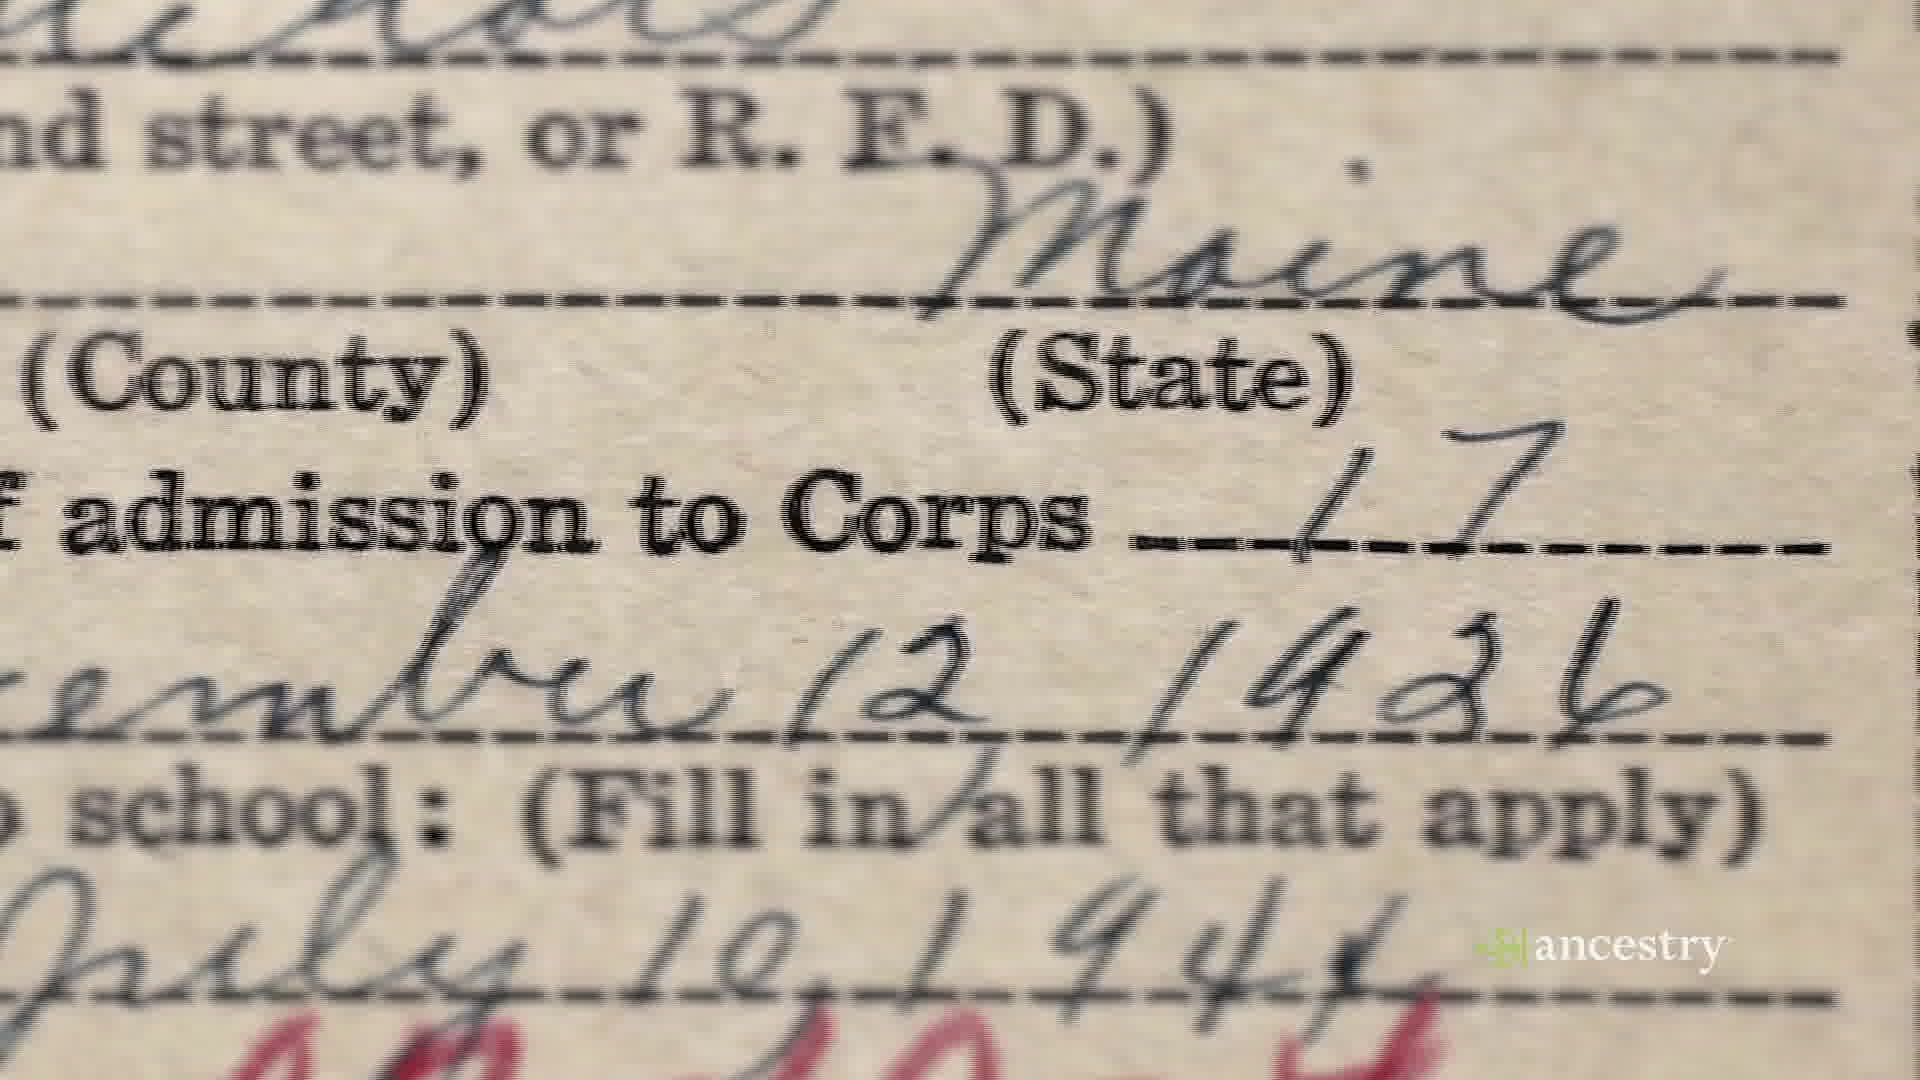 nd street, or R. F. D.)
Maine
(County) (State)
f admission to Corps 17
cember 12, 1926
o school: (Fill in all that apply)
July 10, 1944
ancestry